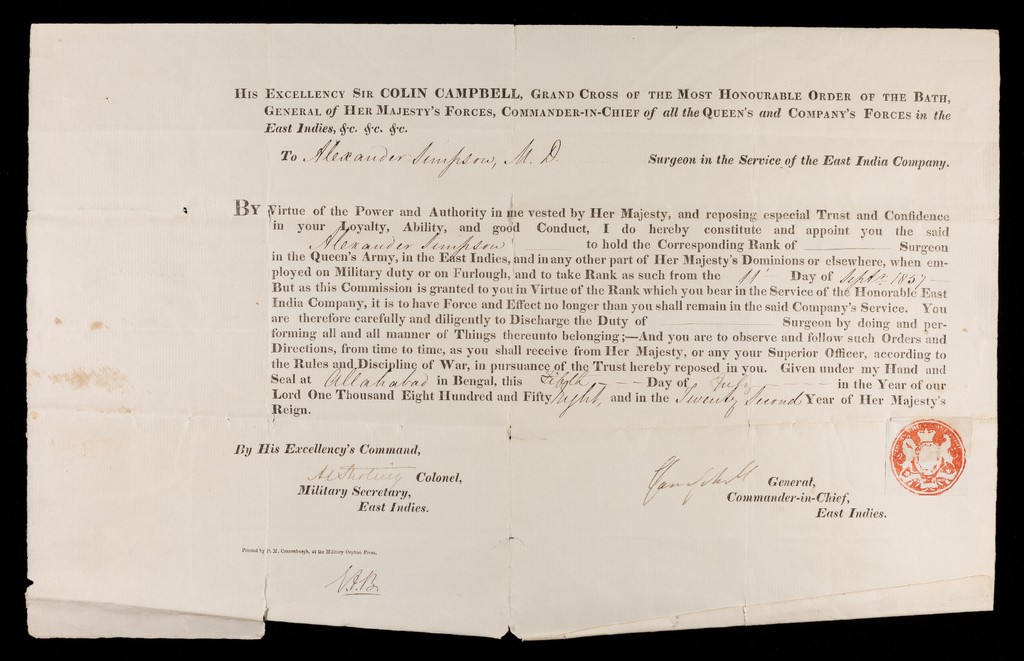 HIS EXCELLENCY SIR COLIN CAMPBELL, GRAND CROSS OF THE MOST HONOURABLE ORDER OF THE BATH,
GENERAL of HER MAJESTY'S FORCES, COMMANDER-IN-CHIEF of all the QUEEN'S and COMPANY'S FORCES in the
East Indies, &c. &c. &c.
To Alexander Simpson, M. D. Surgeon in the Service of the East India Company.
BY Virtue of the Power and Authority in me vested by Her Majesty, and reposing especial Trust and Confidence
in your Loyalty, Ability, and good Conduct, I do hereby constitute and appoint you the said
Alexander Simpson to hold the Corresponding Rank of Surgeon
in the Queen's Army, in the East Indies, and in any other part of Her Majesty's Dominions or elsewhere, when em-
ployed on Military duty or on Furlough, and to take Rank as such from the 11th Day of Septr. 1857
But as this Commission is granted to you in Virtue of the Rank which you bear in the Service of the Honorable East
India Company, it is to have Force and Effect no longer than you shall remain in the said Company's Service. You
are therefore carefully and diligently to Discharge the Duty of Surgeon by doing and per-
forming all and all manner of Things thereunto belonging;—And you are to observe and follow such Orders and
Directions, from time to time, as you shall receive from Her Majesty, or any your Superior Officer, according to
the Rules and Discipline of War, in pursuance of the Trust hereby reposed in you. Given under my Hand and
Seal at Allahabad in Bengal, this Fifth Day of July in the Year of our
Lord One Thousand Eight Hundred and Fifty Eight, and in the Twenty Second Year of Her Majesty's
Reign.
By His Excellency's Command,
Colonel,
Military Secretary,
East Indies.
General,
Commander-in-Chief,
East Indies.
Printed by P. M. Cranenburgh, at the Military Orphan Press.